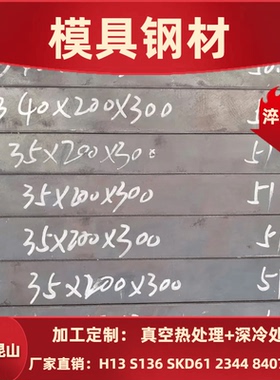 模具钢材
40X200X300
淬
35X200X300
51
35X200X300
51
35X200X300
51
35X200X300
51
昆山
加工定制： 真空热处理+深冷处
厂家直销：H13 S136 SKD61 2344 840